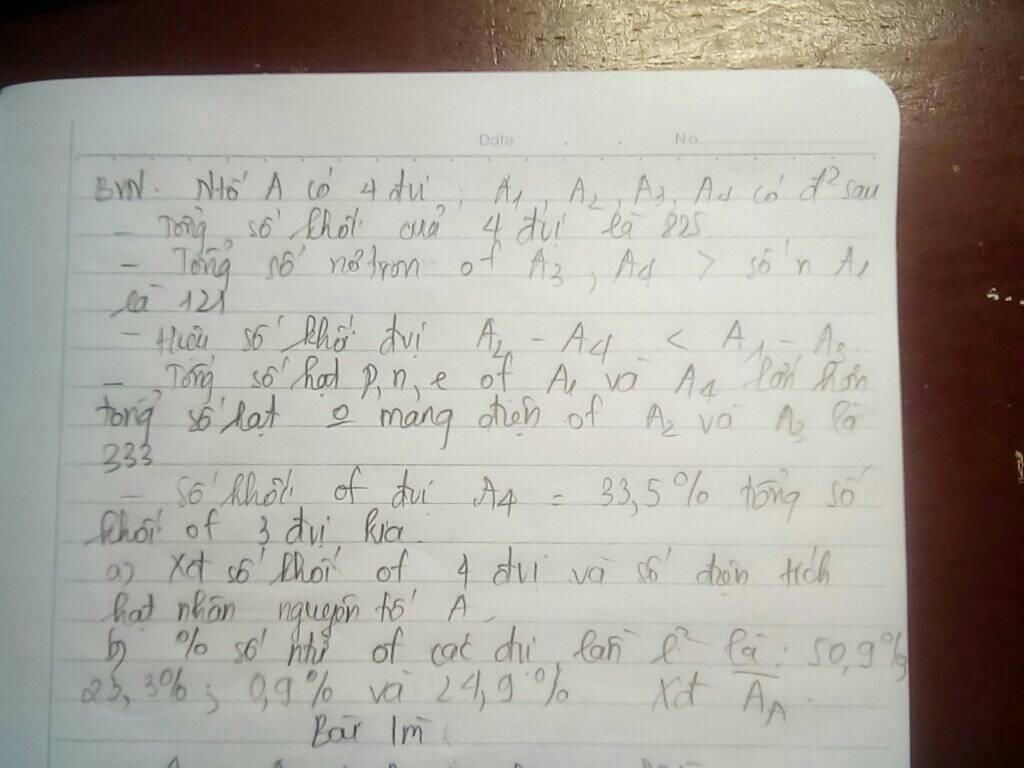 Date . . No
BVN. Ntố A có 4 đvị, A1, A2, A3, A4 có đ² sau
- Tổng số khối của 4 đvị là 825
- Tổng số nơtron of A3, A4 > số n A1
là 121
- Hiệu số khối đvị A2 - A4 < A1 - A3.
- Tổng số hạt p, n, e of A1 và A4 lớn hơn
tổng số hạt o mang điện of A2 và A3 là
333
- Số khối of đvị A4 = 33,5% tổng số
khối of 3 đvị kia.
a) Xđ số khối of 4 đvị và số điện tích
hạt nhân nguyên tố A.
b) % số ntử of các đvị lần l² là: 50,9%;
23,3%; 0,9% và 24,9%. Xđ A̅A.
Bài lm